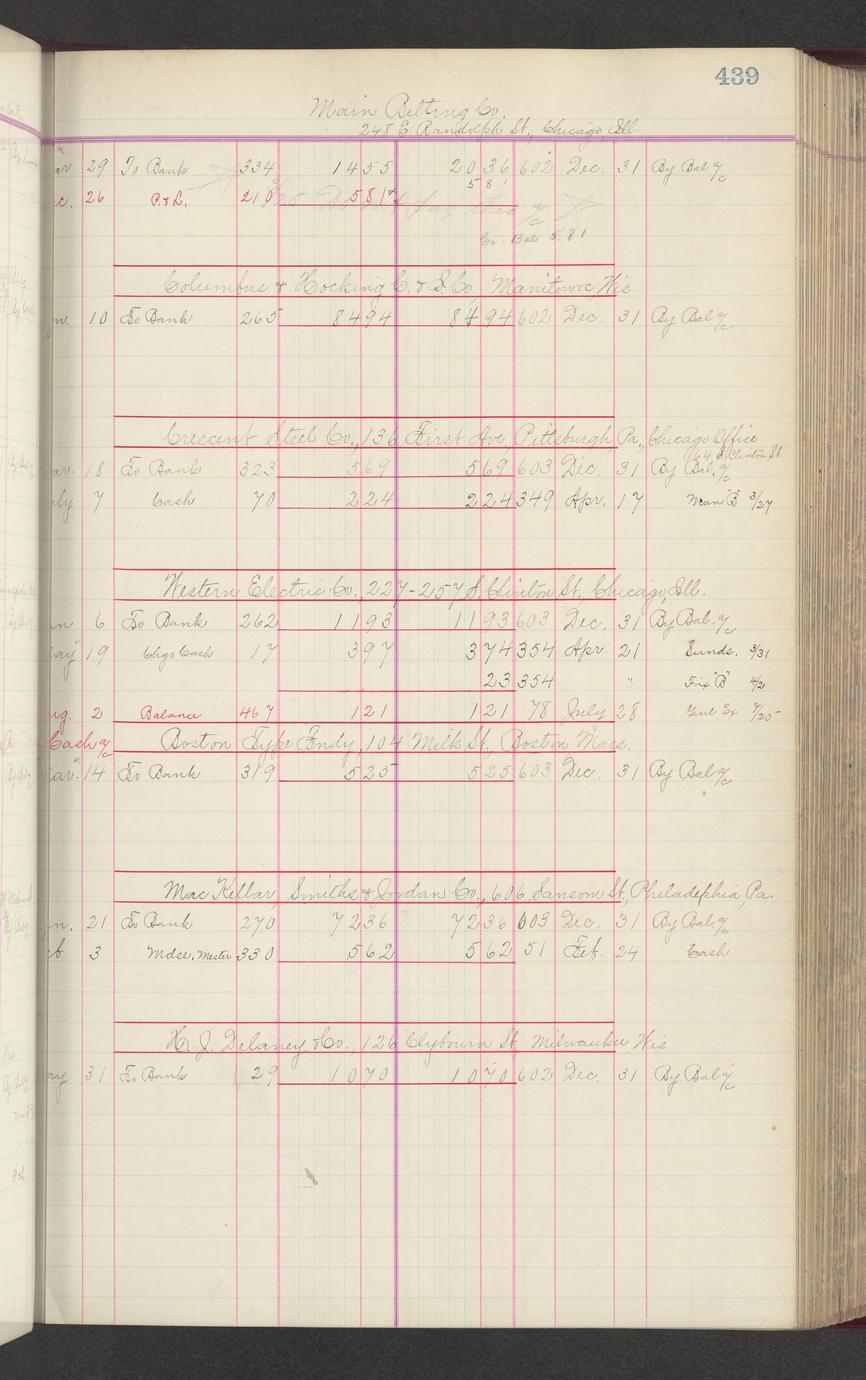 439
Main Belting Co.
248 E. Randolph St., Chicago, Ill.
29 To Bank 334 1455 2036 602 Dec. 31 By Bal a/c
581
26 P. & L. 210 581
a/c
Cr. Bal 5.81
Columbus & Hocking C. & I. Co., Manitowoc, Wis
10 To Bank 265 8494 8494 602 Dec. 31 By Bal a/c
Crescent Steel Co., 136 First Ave, Pittsburgh Pa., Chicago Office
64 S. Clinton St
18 To Bank 323 569 569 603 Dec. 31 By Bal. a/c
7 Cash 70 224 224 349 Apr. 17 "B" 3/27
Western Electric Co., 227-257 S. Clinton St., Chicago, Ill.
6 To Bank 262 1193 1193 603 Dec. 31 By Bal. a/c
19 Chgo Cash 17 397 374 354 Apr 21 Sunds. 3/31
23 354 " Fix "B" 4/2
2 Balance 467 121 121 78 July 28 Genl Ex 7/25
Cash a/c Boston Type Fndy, 104 Milk St., Boston Mass.
14 To Bank 319 525 525 603 Dec. 31 By Bal a/c
Mac Kellar, Smiths & Jordan Co., 606 Sansom St., Philadelphia, Pa.
21 To Bank 270 7236 7236 603 Dec. 31 By Bal. a/c
3 Mdse. 330 562 562 51 Feb. 24 Cash
H. J. Delaney & Co., 126 Clybourn St, Milwaukee, Wis
31 To Bank 29 1070 1070 602 Dec. 31 By Bal a/c